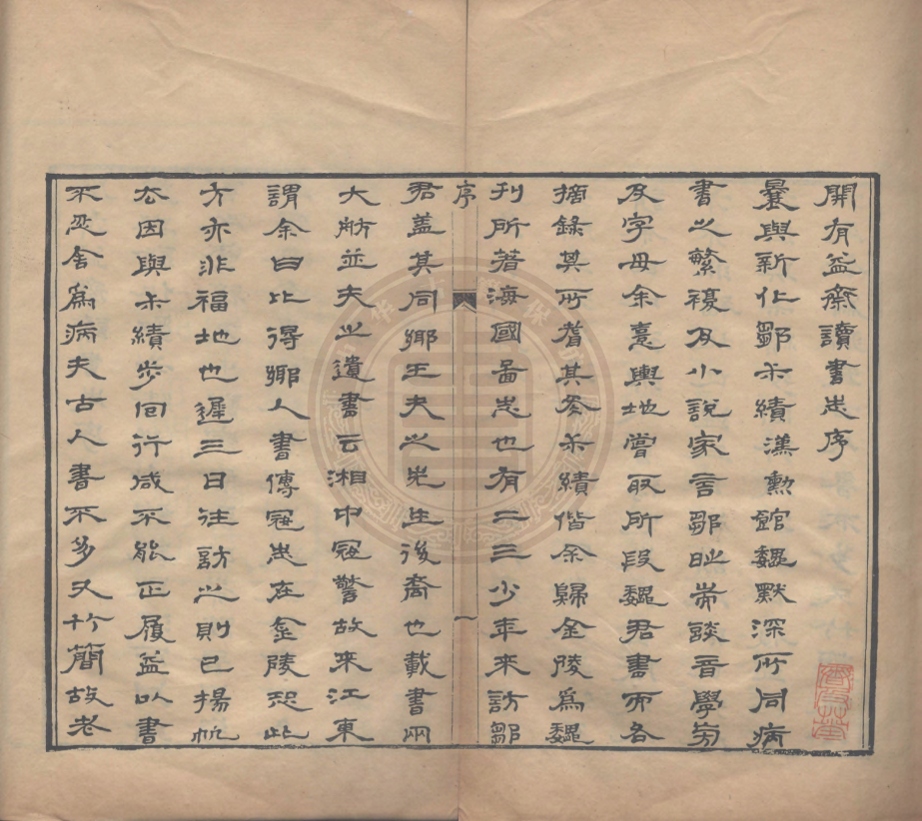 開有益齋讀書志序
曩與新化鄒尗績漢勳館魏默深所同病
書之繁複及小說家言鄒常談音學旁
及字母余憙輿地嘗取所叚魏君書而各
摘錄其所耆其冬尗績偕余歸金陵為魏
刊所著海國圖志也有二三少年來訪鄒
序
一
君蓋其同鄉王夫之先生後裔也載書兩
大舫並夫之遺書云湘中寇警故來江東
謂余曰比得鄉人書傳寇志在金陵恐此
方亦非福地也遲三日往訪之則已揚帆
去因與尗績步回行咸不能正履益以書
不忍舍為病夫古人書不多又竹簡故老